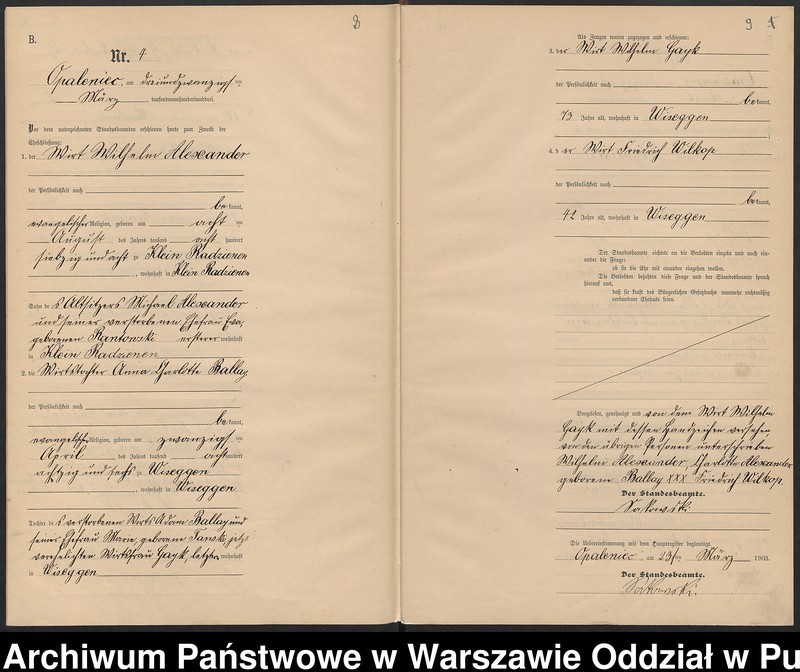 8
B.
Nr. 4
Opaleniec, am dreiundzwanzigsten
März tausendneunhundertunddrei.
Vor dem unterzeichneten Standesbeamten erschienen heute zum Zwecke der
Eheschließung:
1. der Wirt Wilhelm Alexander
der Persönlichkeit nach
bekannt,
evangelischer Religion, geboren am acht ten
August des Jahres tausend acht hundert
siebzig und acht zu Klein Radzienen
, wohnhaft in Klein Radzienen
Sohn des Altsitzers Michael Alexander
und seiner verstorbenen Ehefrau Eva,
geborenen Rantonski ersterer wohnhaft
in Klein Radzienen
2. die Wirtstochter Anna Charlotte Ballay
der Persönlichkeit nach
bekannt,
evangelischer Religion, geboren am zwanzigsten
April des Jahres tausend acht hundert
achtzig und sechs zu Wiseggen
, wohnhaft in Wiseggen
Tochter des verstorbenen Wirts Adam Ballay und
seiner Ehefrau Marie, geborene Tanski, jetzt
verehelichten Wirtsfrau Gayk, letztere wohnhaft
in Wiseggen
9
Als Zeugen waren zugezogen und erschienen:
3. der Wirt Wilhelm Gayk
der Persönlichkeit nach
bekannt,
73 Jahre alt, wohnhaft in Wiseggen
;
4. der Wirt Friedrich Wilkop
der Persönlichkeit nach
bekannt,
42 Jahre alt, wohnhaft in Wiseggen
Der Standesbeamte richtete an die Verlobten einzeln und nach ein-
ander die Frage:
ob sie die Ehe mit einander eingehen wollen.
Die Verlobten bejahten diese Frage und der Standesbeamte sprach
hierauf aus,
daß sie kraft des Bürgerlichen Gesetzbuchs nunmehr rechtmäßig
verbundene Eheleute seien.
Vorgelesen, genehmigt und von dem Wirt Wilhelm
Gayk mit dessen Handzeichen versehen
von den übrigen Personen unterschrieben
Wilhelm Alexander, Charlotte Alexander
geborene Ballay XXX Friedrich Wilkop.
Der Standesbeamte.
Sakowski.
Die Uebereinstimmung mit dem Hauptregister beglaubigt.
Opaleniec, am 23ten März 1903.
Der Standesbeamte.
Sakowski.
Archiwum Państwowe w Warszawie Oddział w Pu